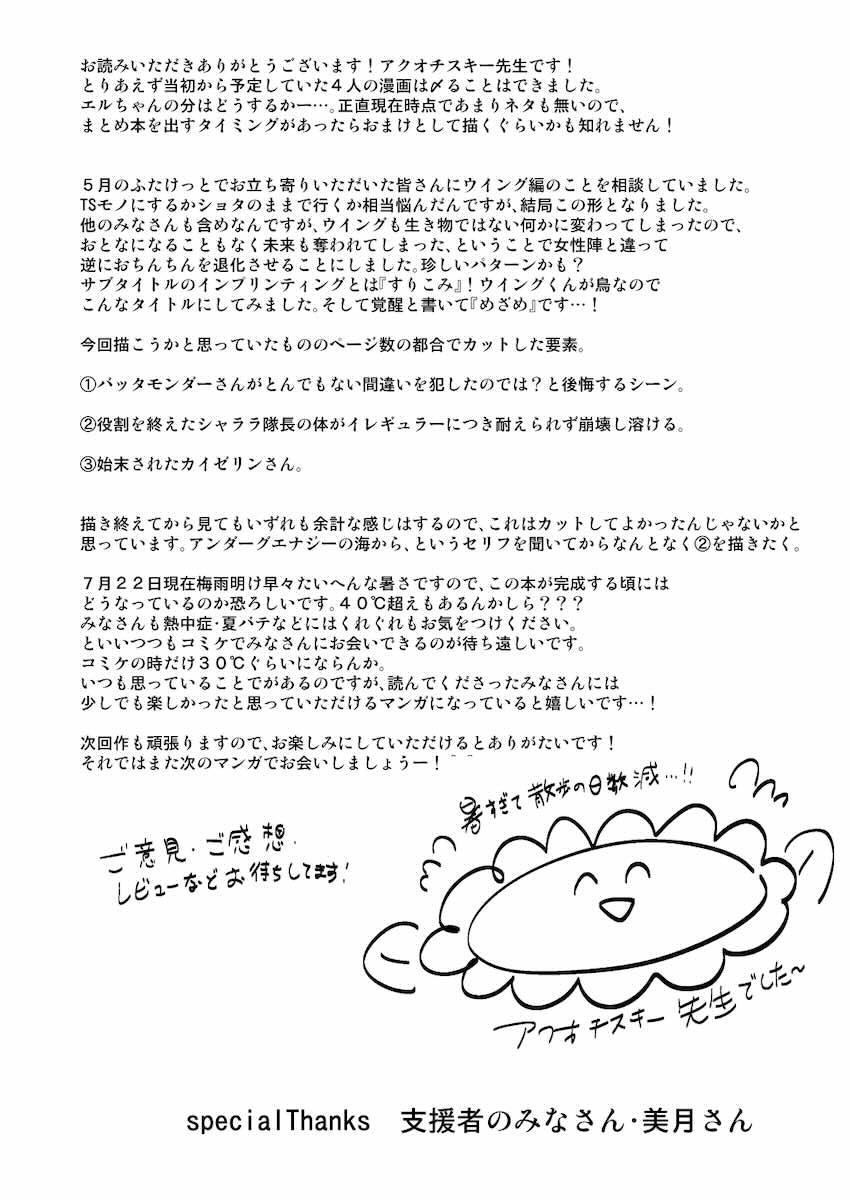 お読みいただきありがとうございます！アクオチスキー先生です！
とりあえず当初から予定していた４人の漫画は〆ることはできました。
エルちゃんの分はどうするかー…。正直現在時点であまりネタも無いので、
まとめ本を出すタイミングがあったらおまけとして描くぐらいかも知れません！
５月のふたけっとでお立ち寄りいただいた皆さんにウイング編のことを相談していました。
TSモノにするかショタのままで行くか相当悩んだんですが、結局この形となりました。
他のみなさんも含めなんですが、ウイングも生き物ではない何かに変わってしまったので、
おとなになることもなく未来も奪われてしまった、ということで女性陣と違って
逆におちんちんを退化させることにしました。珍しいパターンかも？
サブタイトルのインプリンティングとは『すりこみ』！ウイングくんが鳥なので
こんなタイトルにしてみました。そして覚醒と書いて『めざめ』です…！
今回描こうかと思っていたもののページ数の都合でカットした要素。
①バッタモンダーさんがとんでもない間違いを犯したのでは？と後悔するシーン。
②役割を終えたシャララ隊長の体がイレギュラーにつき耐えられず崩壊し溶ける。
③始末されたカイゼリンさん。
描き終えてから見てもいずれも余計な感じはするので、これはカットしてよかったんじゃないかと
思っています。アンダーグエナジーの海から、というセリフを聞いてからなんとなく②を描きたく。
７月２２日現在梅雨明け早々たいへんな暑さですので、この本が完成する頃には
どうなっているのか恐ろしいです。４０℃超えもあるんかしら？？？
みなさんも熱中症・夏バテなどにはくれぐれもお気をつけください。
といいつつもコミケでみなさんにお会いできるのが待ち遠しいです。
コミケの時だけ３０℃ぐらいにならんか。
いつも思っていることでがあるのですが、読んでくださったみなさんには
少しでも楽しかったと思っていただけるマンガになっていると嬉しいです…！
次回作も頑張りますので、お楽しみにしていただけるとありがたいです！
それではまた次のマンガでお会いしましょうー！＾＾
暑すぎて散歩の日数減…!!
ご意見・ご感想・
レビューなどお待ちしてます!
アクオチスキー先生でした〜
specialThanks　支援者のみなさん・美月さん